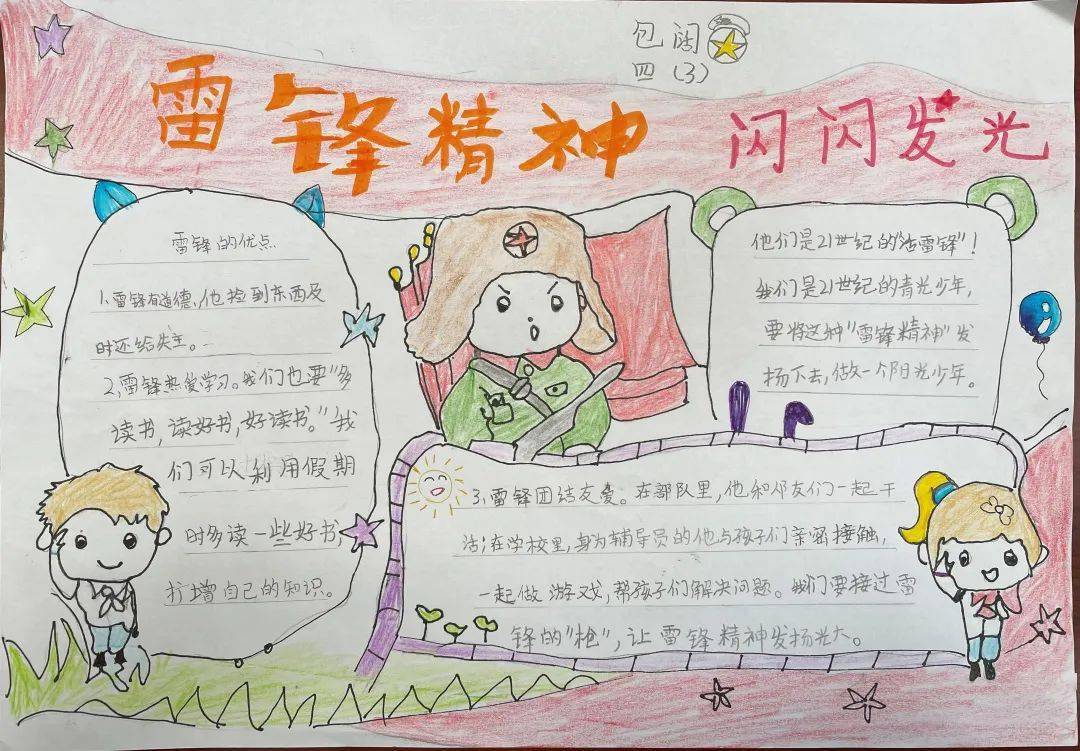 包阔
四(3)
雷锋精神 闪闪发光
雷锋的优点
1、雷锋有道德,他捡到东西及
时还给失主。
2、雷锋热爱学习。我们也要"多
读书,读好书,好读书。"我
们可以利用假期
时多读一些好书,
扩增自己的知识。
他们是21世纪的"活雷锋"!
我们是21世纪的青光少年,
要将这种"雷锋精神"发
扬下去,做一个阳光少年。
3、雷锋团结友爱。在部队里,他和邻友们一起干
活;在学校里,身为辅导员的他与孩子们亲密接触,
一起做游戏,帮孩子们解决问题。我们要接过雷
锋的"枪",让雷锋精神发扬光大。